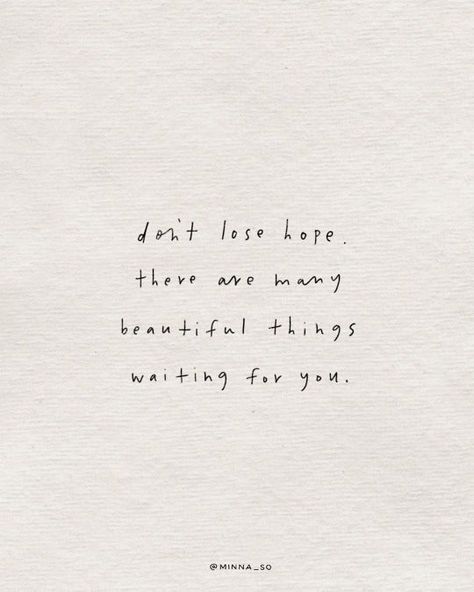 don't lose hope.
there are many
beautiful things
waiting for you.
@MINNA_SO